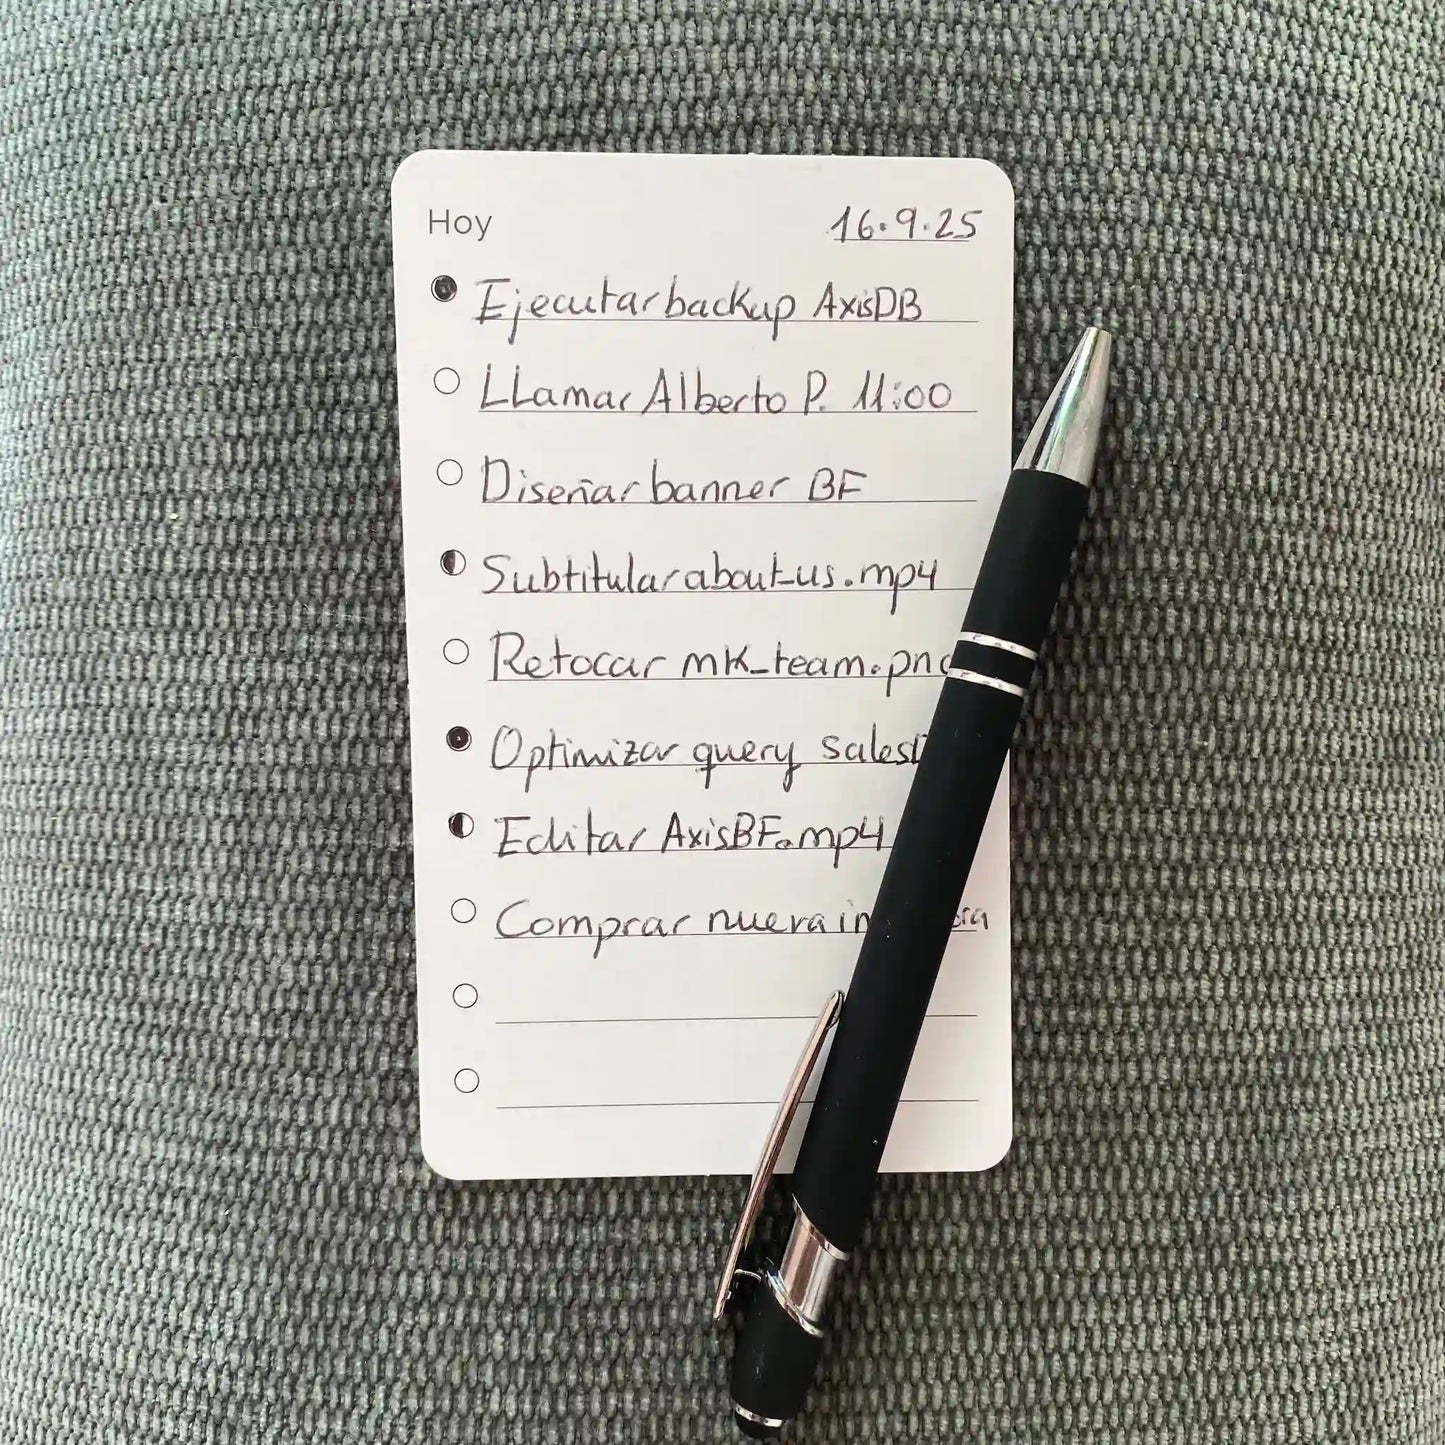 Hoy
16.9.25
Ejecutar backup AxisDB
LLamar Alberto P. 11:00
Diseñar banner BF
Subtitular about_us.mp4
Retocar
Optimizar query
Editar AxisBF.mp4
Comprar nueva